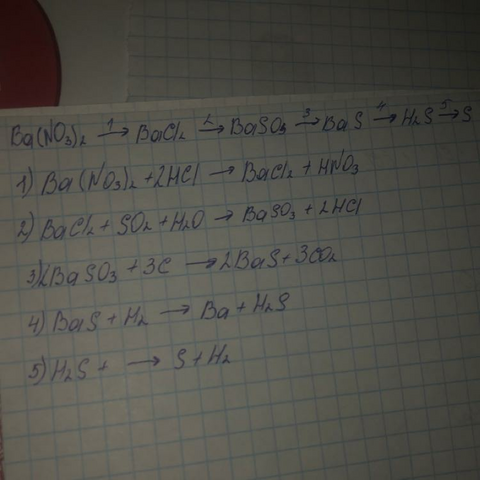 Ba(NO₃)₂ →¹ BaCl₂ →² BaSO₃ →³ BaS →⁴ H₂S →⁵ S
1) Ba(NO₃)₂ + 2HCl → BaCl₂ + HNO₃
2) BaCl₂ + SO₂ + H₂O → BaSO₃ + 2HCl
3) 2BaSO₃ + 3C → 2BaS + 3CO₂
4) BaS + H₂ → Ba + H₂S
5) H₂S + → S + H₂